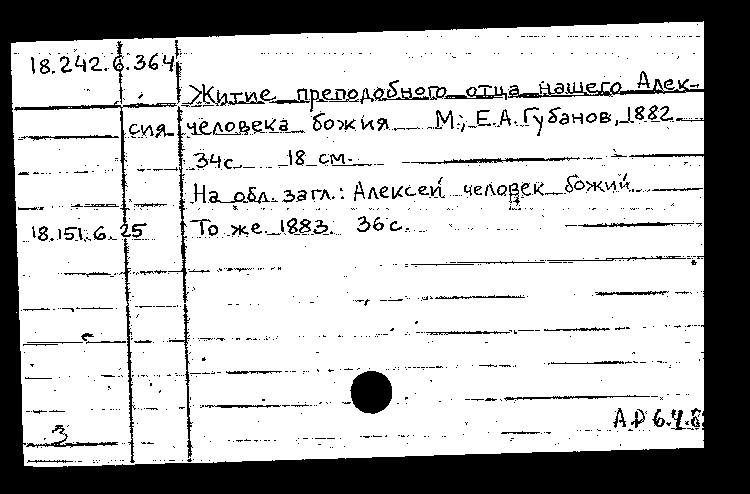 18.242.6.364
Житие преподобного отца нашего Алек-
сия человека божия М., Е.А. Губанов, 1882
34с. 18 см.
На обл. загл.: Алексей человек божий
18.151.6.25 То же. 1883. 36с.
3